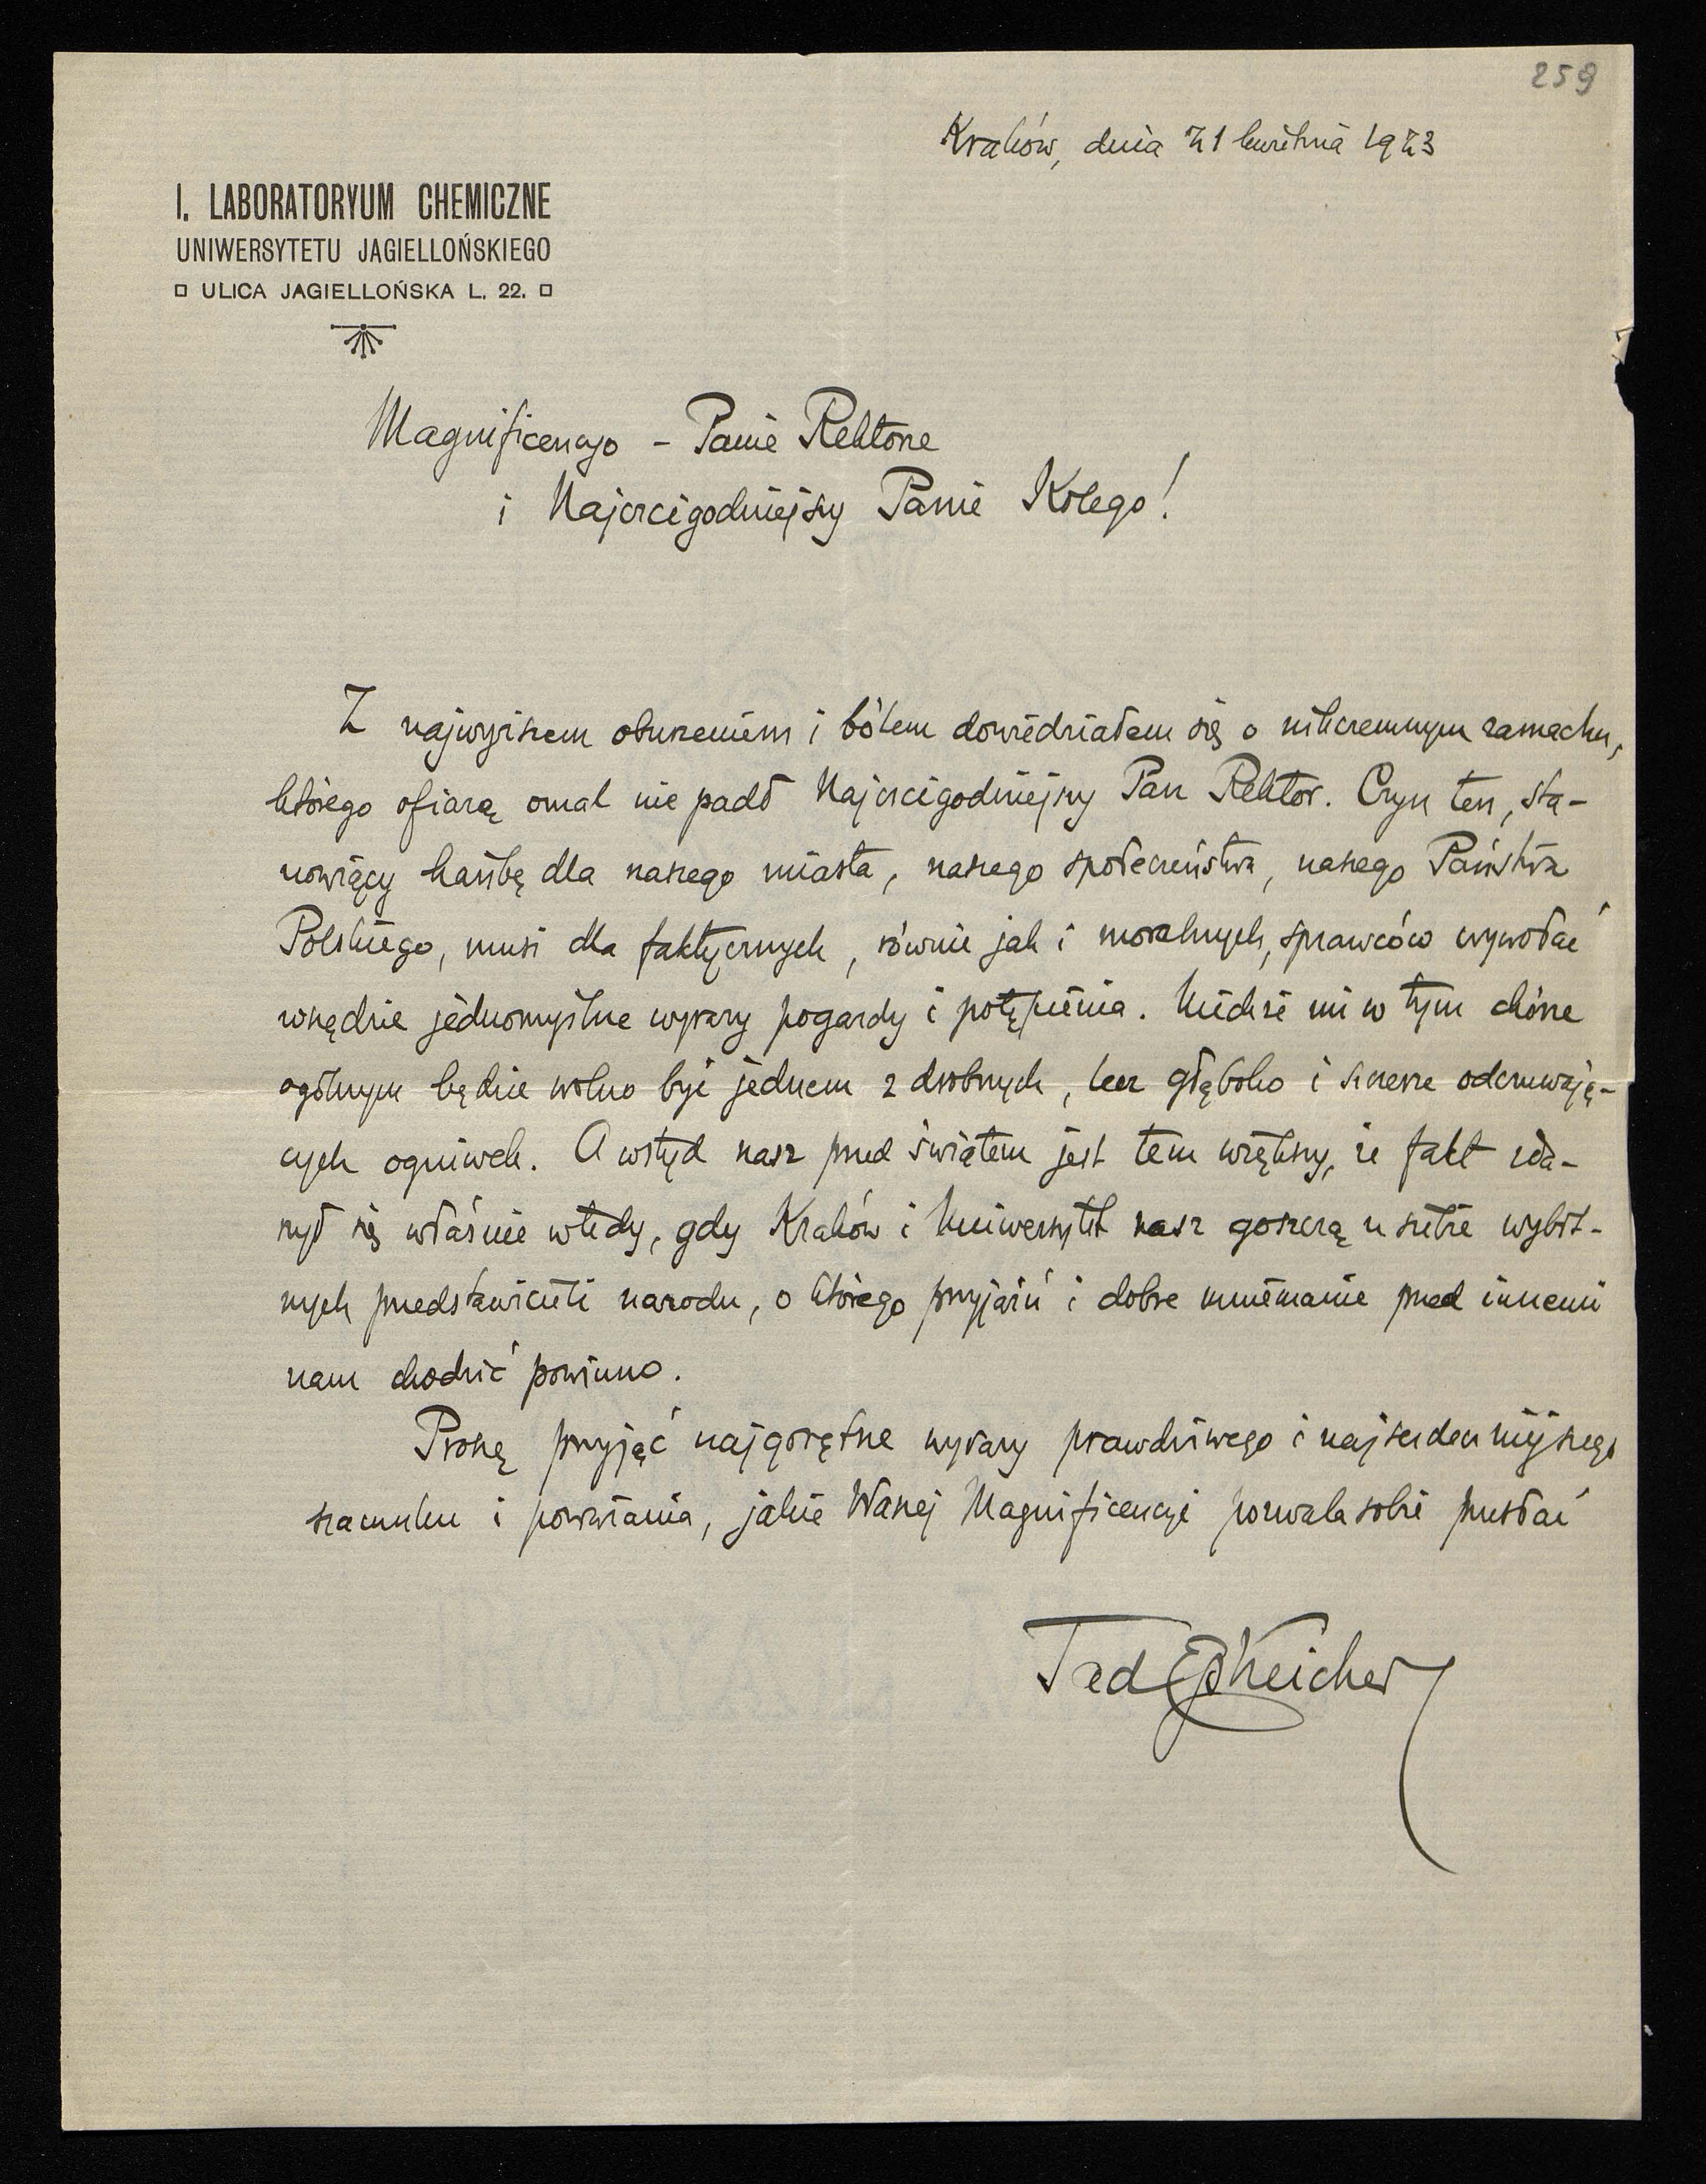 259
Kraków, dnia 21 kwietnia 1923
I. LABORATORYUM CHEMICZNE
UNIWERSYTETU JAGIELLOŃSKIEGO
ULICA JAGIELLOŃSKA L. 22.
Magnificencjo – Panie Rektorze
i Najczcigodniejszy Panie Kolego!
Z najwyższem oburzeniem i bólem dowiedziałem się o nikczemnym zamachu,
którego ofiarą omal nie padł Najczcigodniejszy Pan Rektor. Czyn ten, sta-
nowiący hańbę dla naszego miasta, naszego społeczeństwa, naszego Państwa
Polskiego, musi dla faktycznych, równie jak i moralnych, sprawców wywołać
wszędzie jednomyślne wyrazy pogardy i potępienia. Niechże mi w tym chórze
ogólnym będzie wolno być jednem z drobnych, lecz głęboko i szczerze odczuwają-
cych ogniwek. A wstyd nasz przed światem jest tem większy, że fakt zda-
rzył się właśnie wtedy, gdy Kraków i Uniwersytet nasz goszczą u siebie wybit-
nych przedstawicieli narodu, o którego przyjaźń i dobre mniemanie przed innemi
nam chodzić powinno.
Proszę przyjąć najgorętsze wyrazy prawdziwego i najserdeczniejszego
szacunku i poważania, jakie Waszej Magnificencji pozwala sobie przesłać
Tad Estreicher